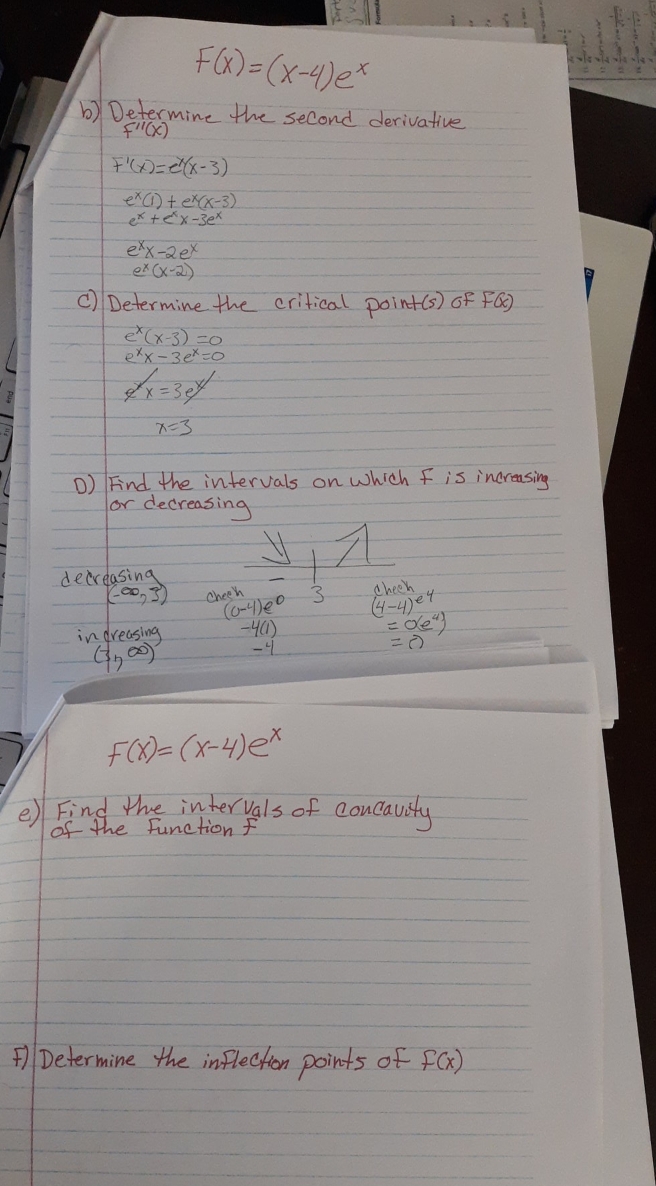 F(x)=(x-4)eˣ
b) Determine the second derivative
F''(x)
F'(x)=eˣ(x-3)
eˣ(1) + eˣ(x-3)
eˣ + eˣx-3eˣ
eˣx-2eˣ
eˣ(x-2)
C) Determine the critical point(s) of F(x)
eˣ(x-3)=0
eˣx-3eˣ=0
eˣx=3eˣ
x=3
D) Find the intervals on which f is increasing
or decreasing
decreasing
(-∞,3)
increasing
(3,∞)
-
3
check
(0-4)e⁰
-4(1)
-4
check
(4-4)e⁴
=0(e⁴)
=0
F(x)=(x-4)eˣ
e) Find the intervals of concavity
of the function f
F) Determine the inflection points of f(x)